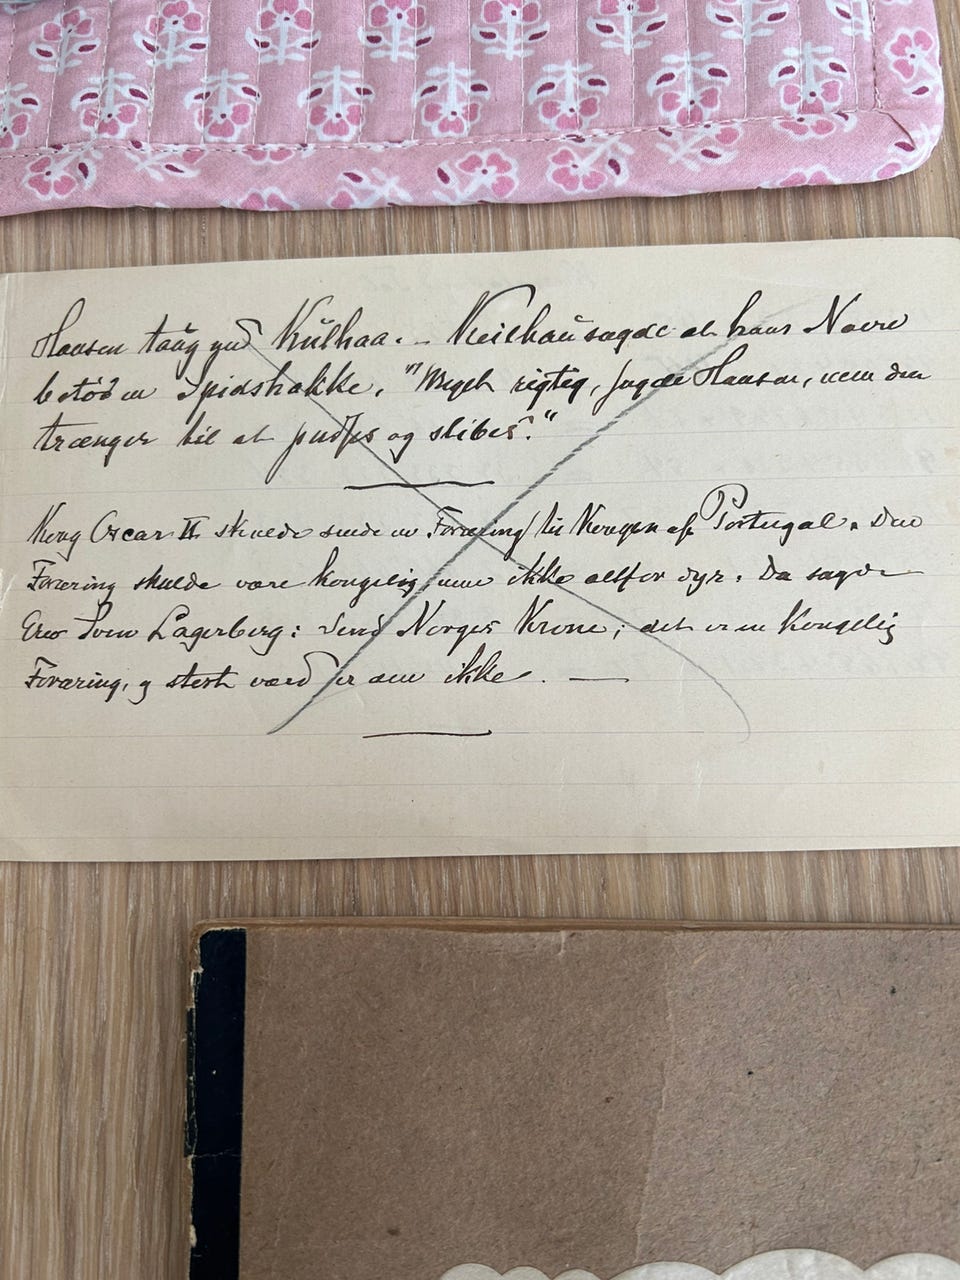 Hansen taug med Kulhaa. – Keilhau sagde at hans Navn
betød en Spidshakke. "Meget rigtig, sagde Hansen, men den
trænger til at pudses og slibes."
Kong Oscar II skulde sende en Foræring til Kongen af Portugal. Den
Foræring skulde være kongelig men ikke altfor dyr. Da sagde
Sven Lagerberg: Send Norges Krone; det er en Kongelig
Foræring, og stort værd er den ikke. —